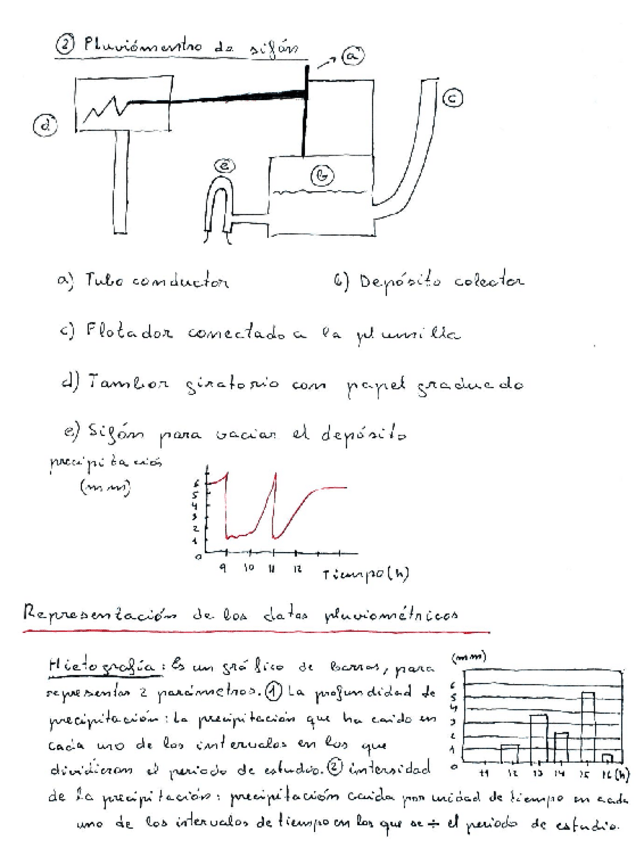 ② Pluviómentro de sifón
a
c
d
e
b
a) Tubo conductor b) Depósito colector
c) Flotador conectado a la plumilla
d) Tambor giratorio con papel graduado
e) Sifón para vaciar el depósito
precipitación
(mm)
6
5
4
3
2
1
0
9 10 11 12 Tiempo (h)
Representación de los datos pluviométricos
Hietografía: Es un gráfico de barras, para
representar 2 parámetros. ① La profundidad de
precipitación: La precipitación que ha caido en
cada uno de los intervalos en los que
dividieron el periodo de estudio. ② intensidad
de la precipitación: precipitación caida por unidad de tiempo en cada
uno de los intervalos de tiempo en los que se ÷ el periodo de estudio.
(mm)
6
5
4
3
2
1
0
11 12 13 14 15 16 (h)